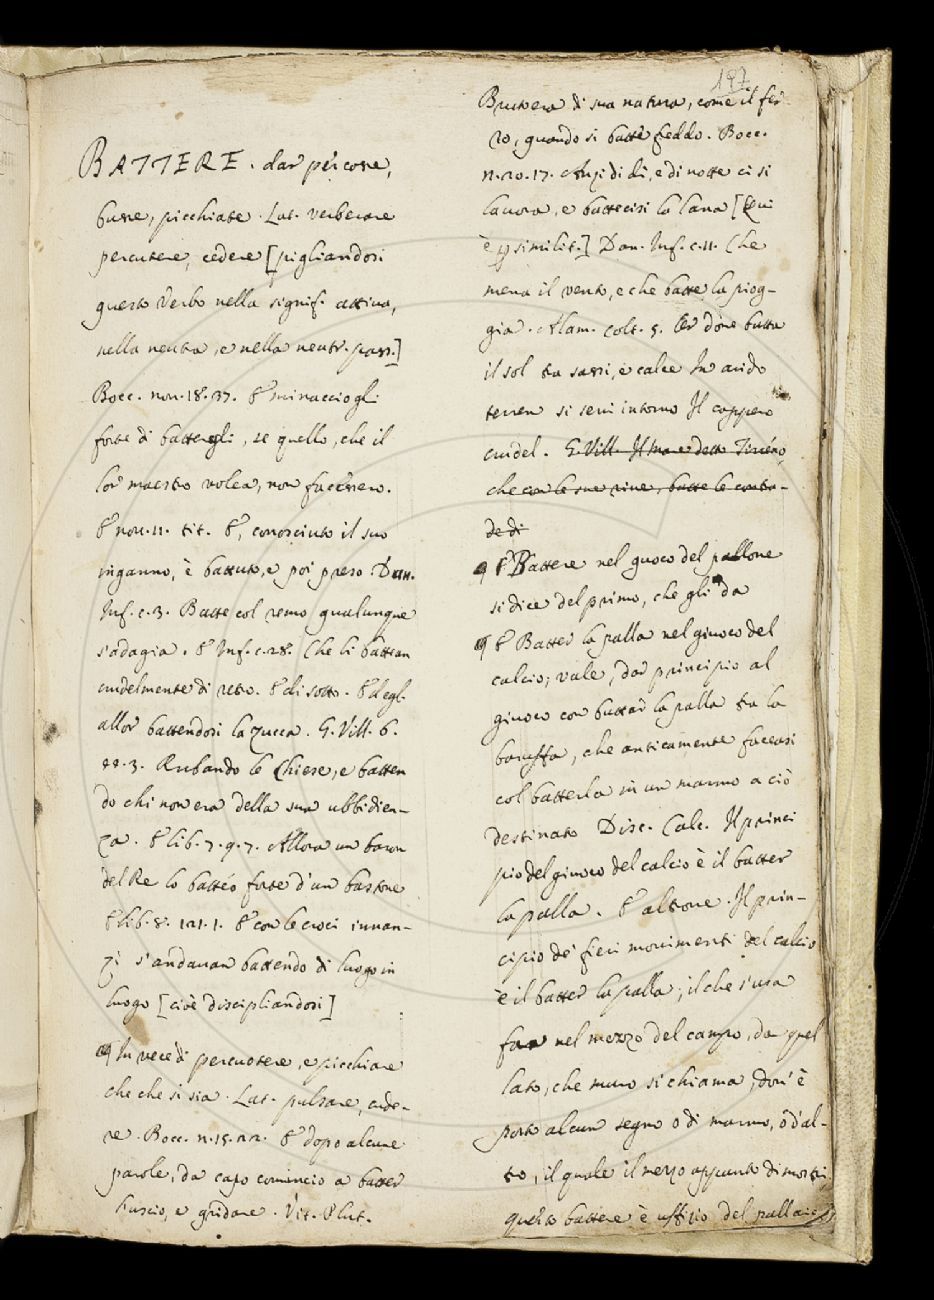 197
BATTERE. dar percosse,
busse, picchiate. Lat. verberare
percutere, cedere [pigliandosi
questo Verbo nella signif. attiva,
nella neutra, e nella neutr. pass.]
Bocc. nov. 18. 37. E minacciogli
forte di battergli, se quello, che il
lor maestro volea, non facessero.
E nov. 11. tit. E, conosciuto il suo
inganno, è battuto, e poi preso. Dan.
Inf. c. 3. Batte col remo qualunque
s'adagia. E Inf. c. 18. Che li battean
crudelmente di retro. E di sotto. E d'egl.
allor battendosi la zucca. G. Vill. 6.
22. 3. Rubando le Chiese, e batten
do chi non era della sua ubbidien-
za. E lib. 7. 9. 7. Allora un baron
del Re lo battéo forte d'un bastone
E lib. 8. 121. 1. E con le croci innan-
zi s'andavan battendo di luogo in
luogo [cioè discipliandosi]
¶ In vece di percuotere, e picchiare
che che si sia. Lat. pulsare, cude-
re. Bocc. n. 15. 22. E dopo alcune
parole, da capo comincio a batter
l'uscio, e gridare. Vit. Plut.
Brutera di sua natura, come il fer
ro, quando si batte freddo. Bocc.
n. 20. 17. Anzi di dì, e di notte ci si
lavora, e battecisi la lana [qui
è p similit.] Dan. Inf. c. 11. Che
mena il vento, e che batte la piog-
gia. Alam. Colt. 5. Ver dove batta
il sol tra sassi, e calce In arido
terren si semi intorno Il cappero
crudel. G. Vill. Il mare detto Tirréno,
che con le sue rive, batte le contra-
de di
¶ E Battere nel giuoco del pallone
si dice del primo, che gli da
¶ E Batter la palla nel giuoco del
calcio, vale, dar principio al
giuoco con buttar la palla tra la
baruffa, che anticamente faceasi
col batterla in un marmo a ciò
destinato Disc. Calc. Il princi
pio del giuoco del calcio è il batter
la palla. E altrove. Il prin-
cipio de' fieri movimenti del calcio
è il batter la palla; il che s'usa
far nel mezzo del campo, da quel
lato, che muro si chiama, dov'è
posto alcun segno o di marmo, o d'al-
tro, il quale il mezzo appunto dimostri
questo battere è uffizio del pallaio